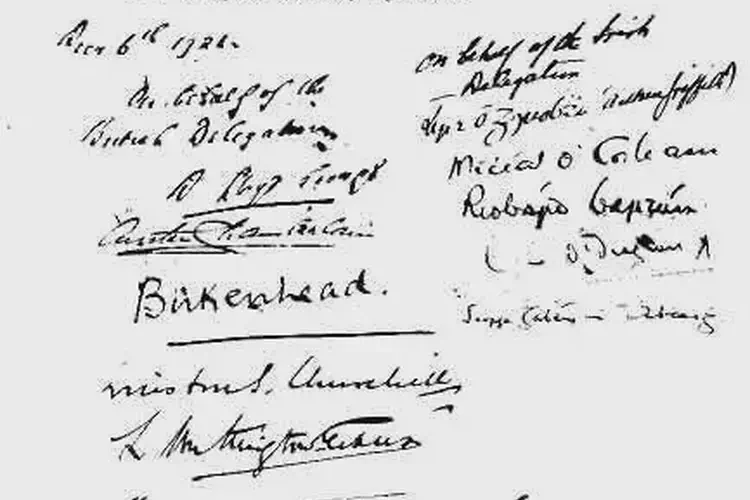 Decr 6th 1921.
On behalf of the
British Delegation
D Lloyd George
Austen Chamberlain
Birkenhead.
Winston S. Churchill
L Worthington-Evans
On behalf of the Irish
Delegation
Art Ó Gríobhtha (Arthur Griffith)
Micheál Ó Coileain
Riobárd Bartún